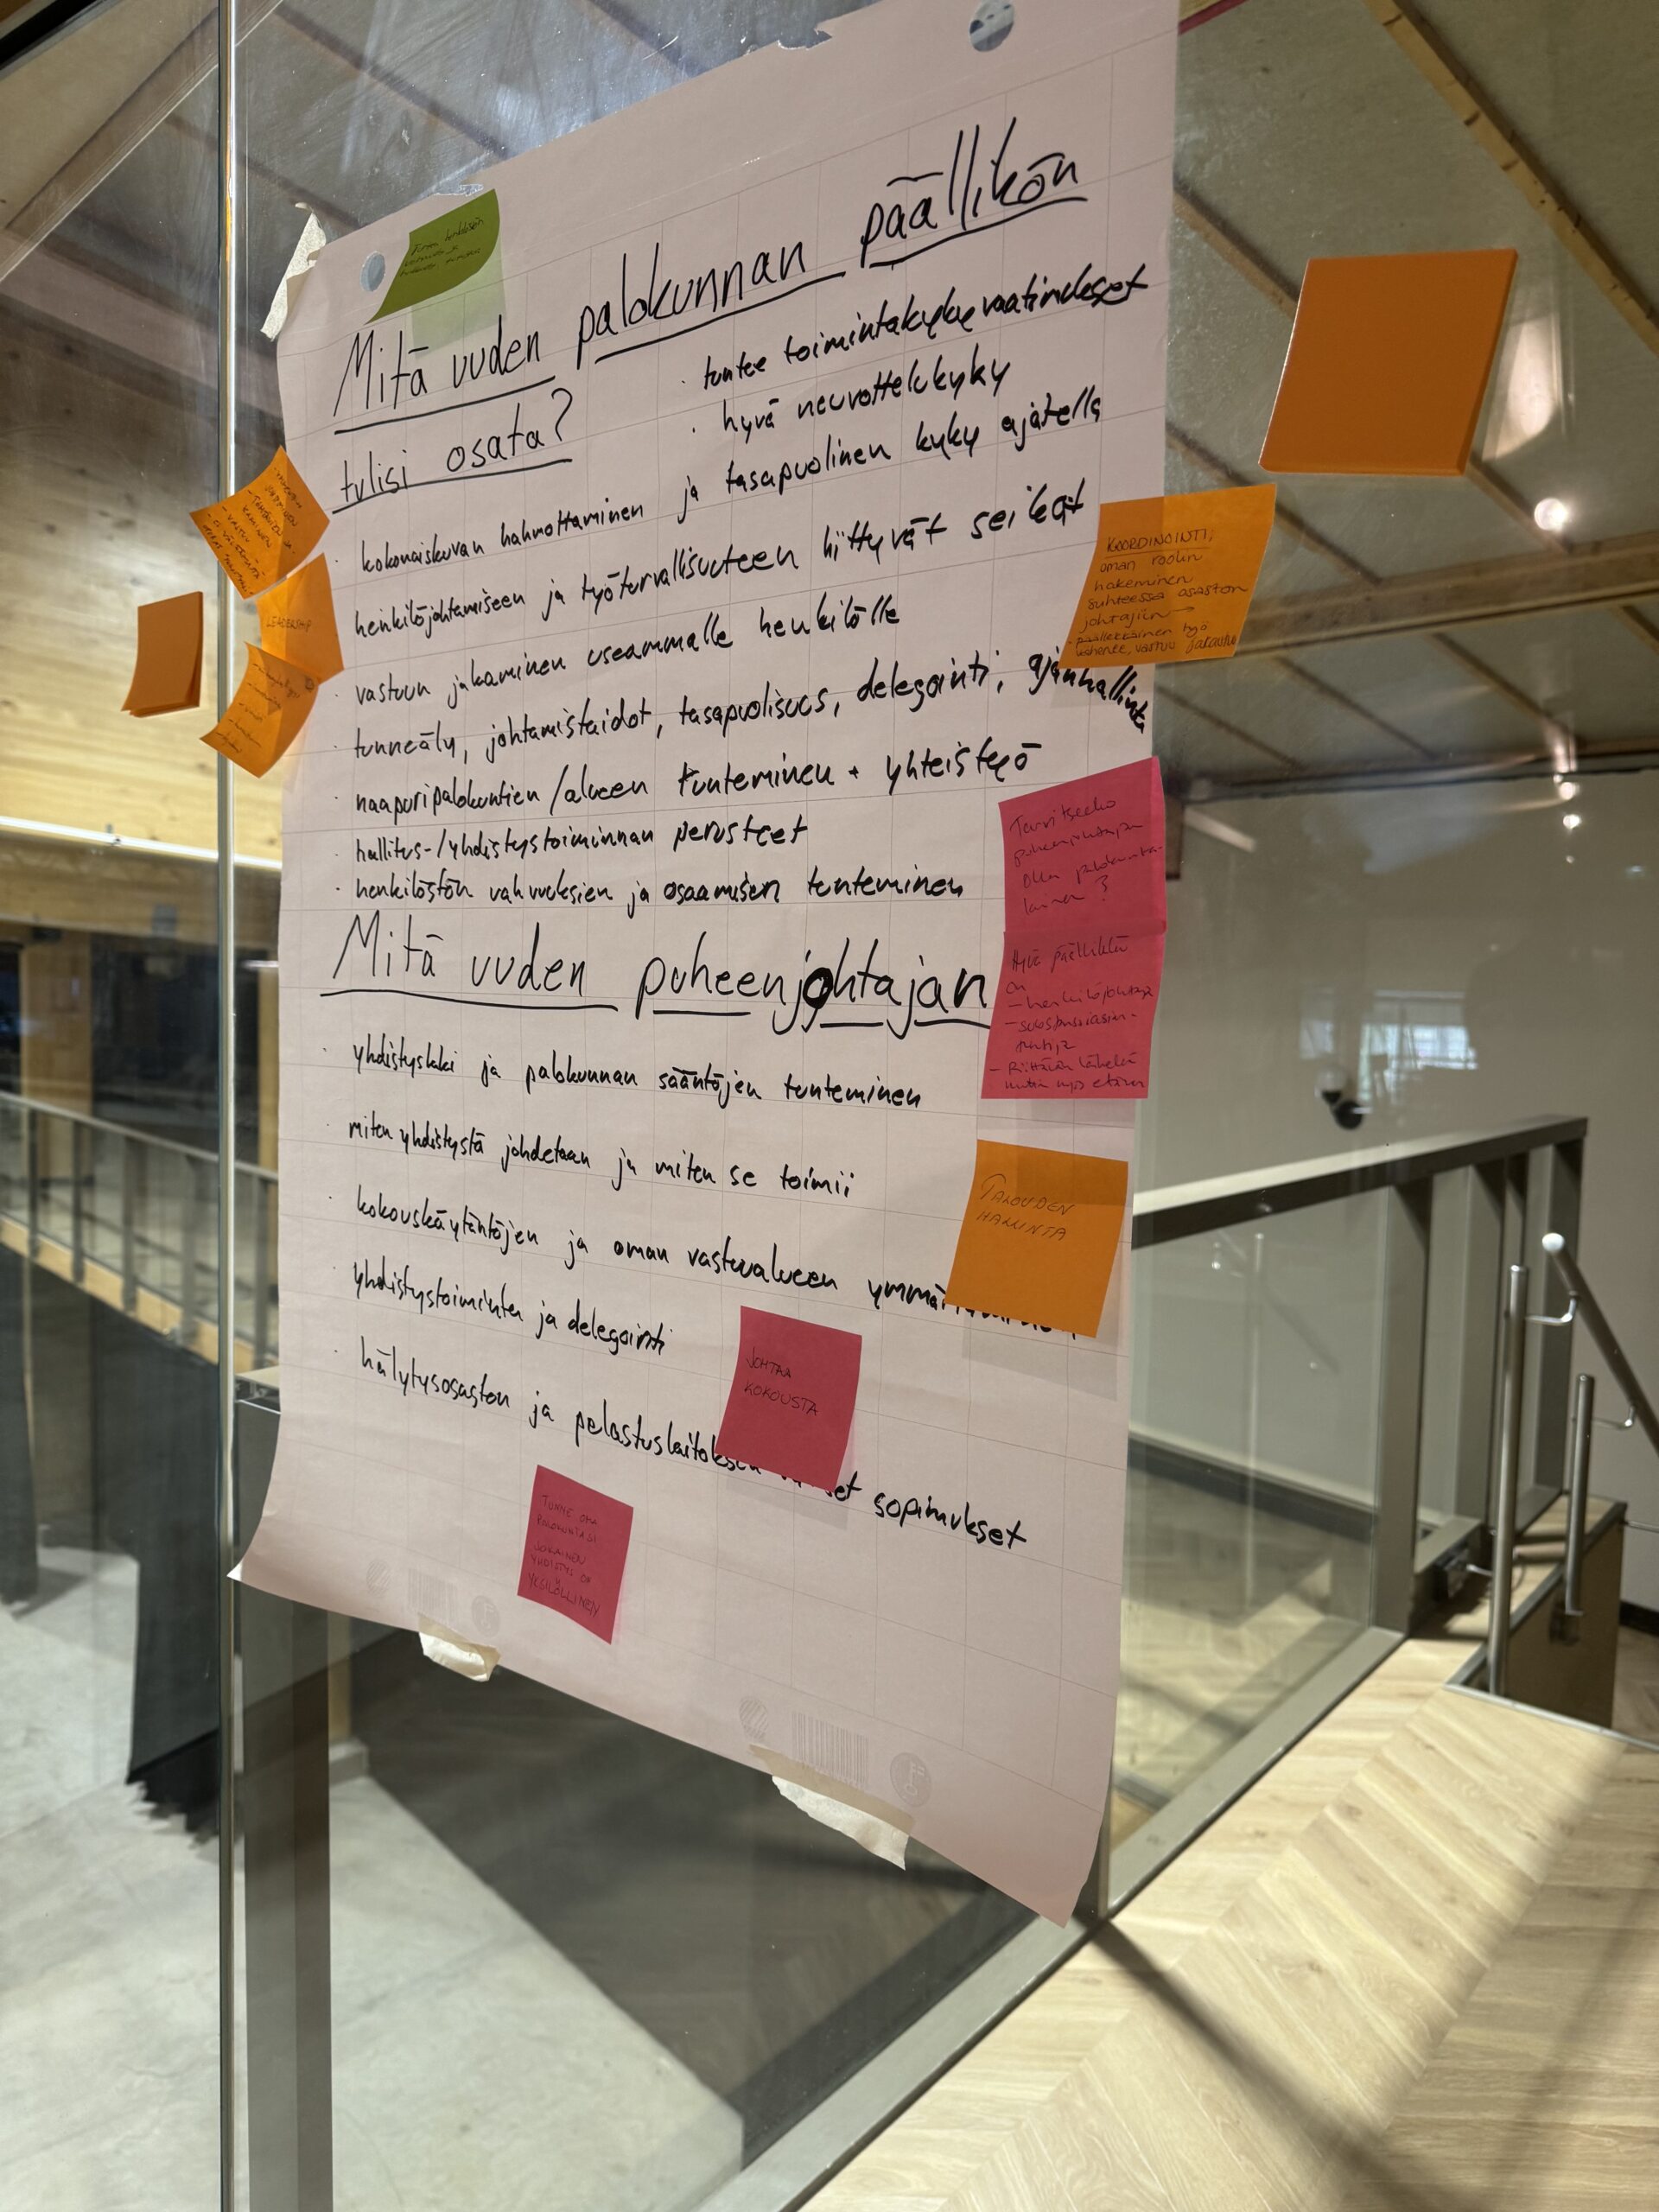 Mitä vuuden palokunnan päällikön
tulisi osata?
· tuntee toimintakykyvaatimukset
· hyvä neuvottelukyky
· kokonaiskuvan hahmottaminen ja tasapuolinen kyky ajatella
henkilöjohtamiseen ja työturvallisuuteen liittyvät seikat
· vastuun jakaminen useammalle henkilölle
· tunneäly, johtamistaidot, tasapuolisuus, delegointi, ajanhallinta
· naapuripalokuntien/alueen tunteminen + yhteistyö
· hallitus-/yhdistystoiminnan perusteet
· henkilöstön vahvuuksien ja osaamisen tunteminen
Mitä vuuden puheenjohtajan
· yhdistyslaki ja palokunnan sääntöjen tunteminen
· miten yhdistystä johdetaan ja miten se toimii
· kokouskäytäntöjen ja oman vastuualueen
· yhdistystoiminta ja delegointi
· hälytysosaston ja pelastuslaitoksen sopimukset
LEADERSHIP
KOORDINOINTI;
oman roolin
hakeminen
suhteessa osaston
johtajiin →
päällekkäinen työ
vähenee, vastuu jakautuu
Tarvitseeko
puheenjohtajan
olla palokunta-
lainen?
Hyvä päällikkö
on
- henkilöjohtaja
- Riittävän lähellä
mutta myös etäällä
TALOUDEN
HALLINTA
JOHTAA
KOKOUSTA
TUNNE OMA
PALOKUNTASI
JOKAINEN
YHDISTYS ON
YKSILÖLLINEN